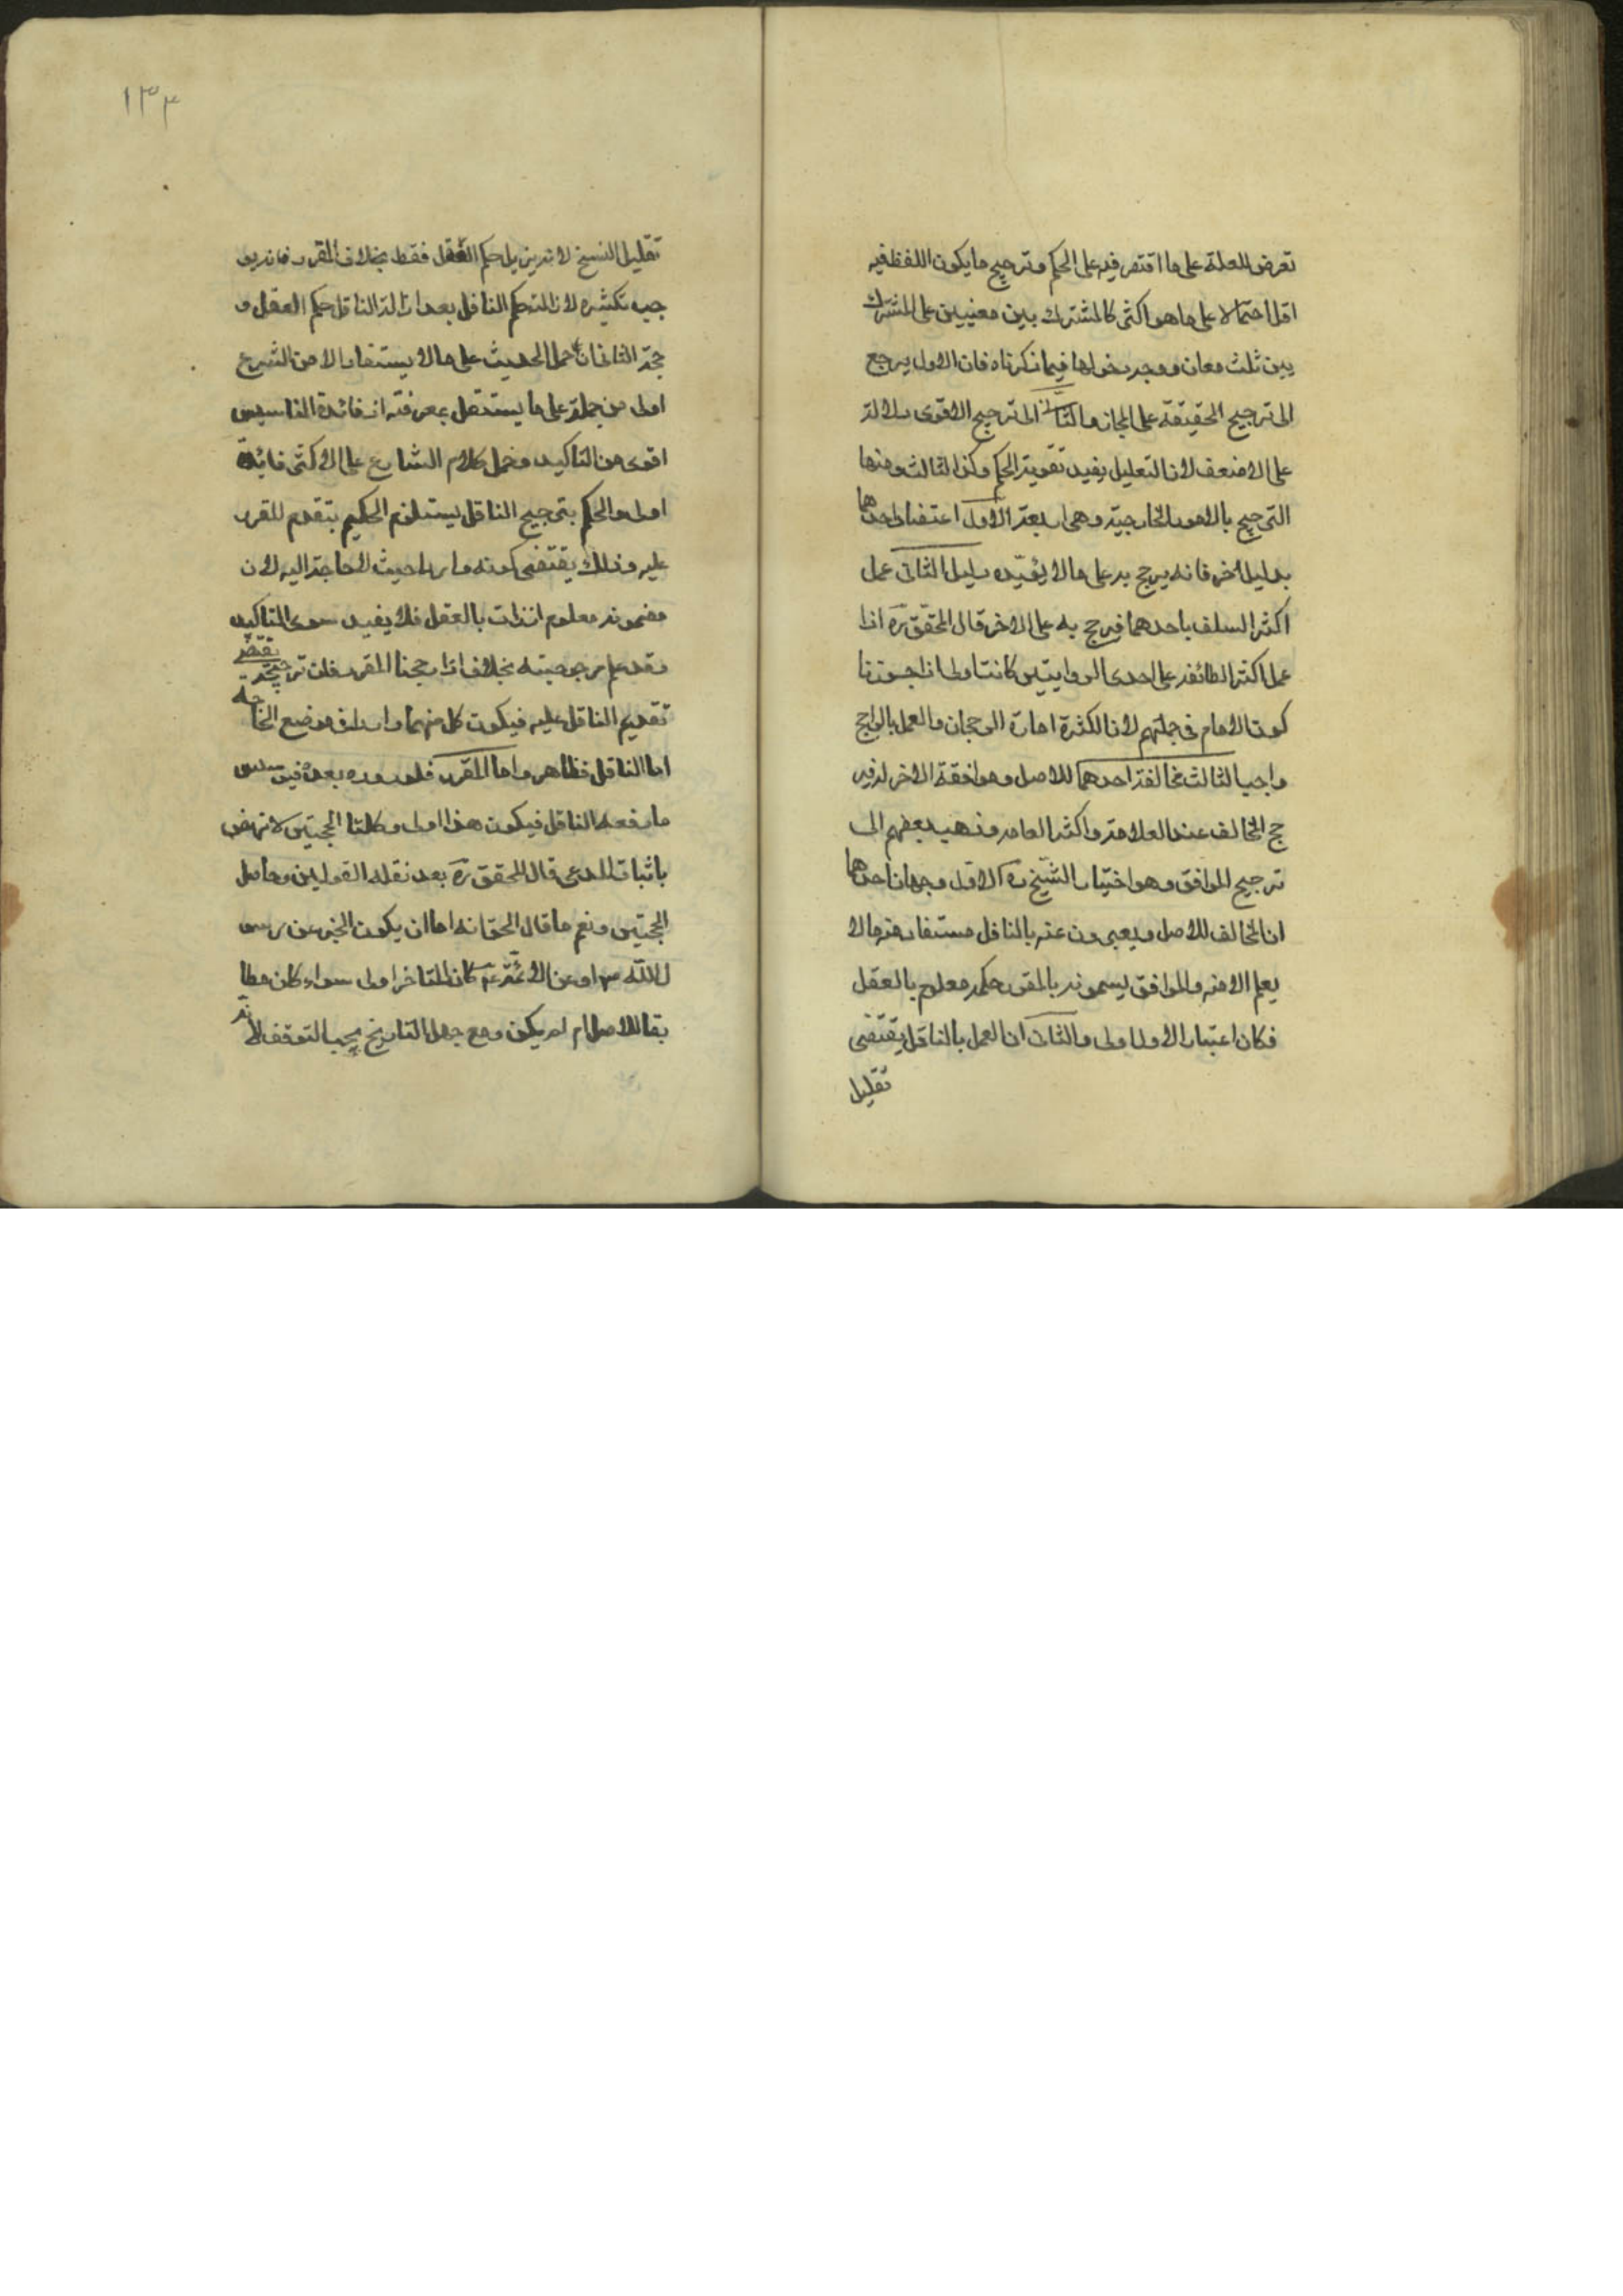 تعرض للعلة على ما اقتصر فيه على الحكم وترجيح ما يكون اللفظ فيه
اقل احتمالا على ما هو اكثر كالمشترك بين معنيين على المشترك
بين ثلث معان ووجه دخولها فيما ذكرناه فان الاول يرجع
الى ترجيح الحقيقة على المجاز والثانى الى ترجيح الاقوى دلالة
على الاضعف لان التعليل يفيد تقوية الحكم وكذا الثالث ومنها
الترجيح بالامور الخارجية وهى اربعة الاول اعتضاد احدهما
بدليل اخر فانه يرجح به على ما لا يؤيده دليل الثانى عمل
اكثر السلف باحدهما فيرجح به على الاخر قال المحقق ره اذا
عمل اكثر الطائفة على احدى الروايتين كانت اولى اذا جوزنا
كون الامام فى جملتهم لان الكثرة امارة الرجحان والعمل بالراجح
واجب الثالث مخالفة احدهما للاصل وموافقة الاخر له فير
جح المخالف عند العلامة واكثر العامه وذهب بعضهم الى
ترجيح الموافق وهو اختيار الشيخ ره الاول وجهان احدهما
ان المخالف للاصل ويعبرون عنه بالناقل مستفاد منه ما لا
يعلم الا منه والموافق يسمونه بالمقرر حكمه معلوم بالعقل
فكان اعتبار الاول اولى والثانى ان العمل بالناقل يقتضى
تقليل
١٣٤
تقليل النسخ لانه يزيل حكم العقل فقط بخلاف المقرر فانه يو
جب تكثيره لازالته حكم الناقل بعد ازالة الناقل حكم العقل و
حجة الثانى ان حمل الحديث على ما لا يستفاد الا من الشرع
اولى من حمله على ما يستقل بمعرفته اذ فائدة التاسيس
اقوى من التاكيد وحمل كلام الشارع على الاكثر فائدة
اولى والحكم بترجيح الناقل يستلزم الحكم بتقدم المقرر
عليه وذلك يقتضى كونه واردا حيث لا حاجة اليه لان
مضمونه معلوم اذ ذاك بالعقل فلا يفيد سوى التاكيد
وقد علم مرجوحيته بخلاف اذا رجحنا المقرر فان ترجيحه يقتضى
تقديم الناقل عليه فيكون كل منهما واردا فى موضع الحاجة
اما الناقل فظاهر واما المقرر فلوروده بعده فيؤسس
ما رفعه الناقل فيكون هذا اولى وكلتا الحجتين لا تنهض
باثبات المدعى قال المحقق ره بعد نقله القولين وحاصل
الحجتين ونعم ما قال الحق انه اما ان يكون الخبر عن رسو
ل الله ص او عن الائمة ع كان المتاخر اولى سواء كان مطا
بقا للاصل ام لم يكن ومع جهل التاريخ يجب التوقف لانه